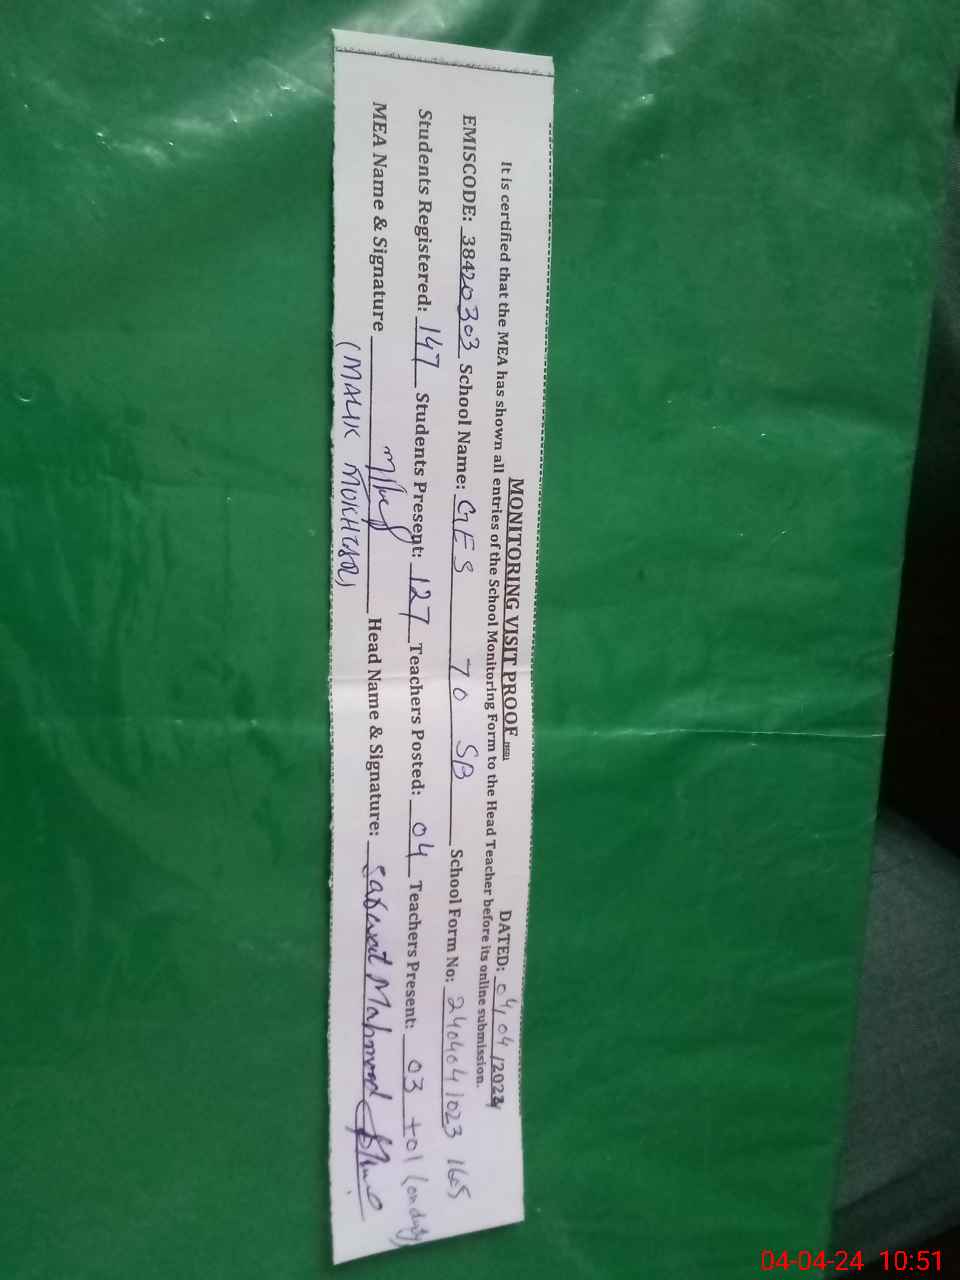 MONITORING VISIT PROOF DATED: 04/04/2024
It is certified that the MEA has shown all entries of the School Monitoring Form to the Head Teacher before its online submission.
EMISCODE: 38420303 School Name: GES 70 SB School Form No: 2404041023 165
Students Registered: 147 Students Present: 127 Teachers Posted: 04 Teachers Present: 03 +01 (on duty)
MEA Name & Signature Head Name & Signature: Mahmood
(MALIK
04-04-24 10:51